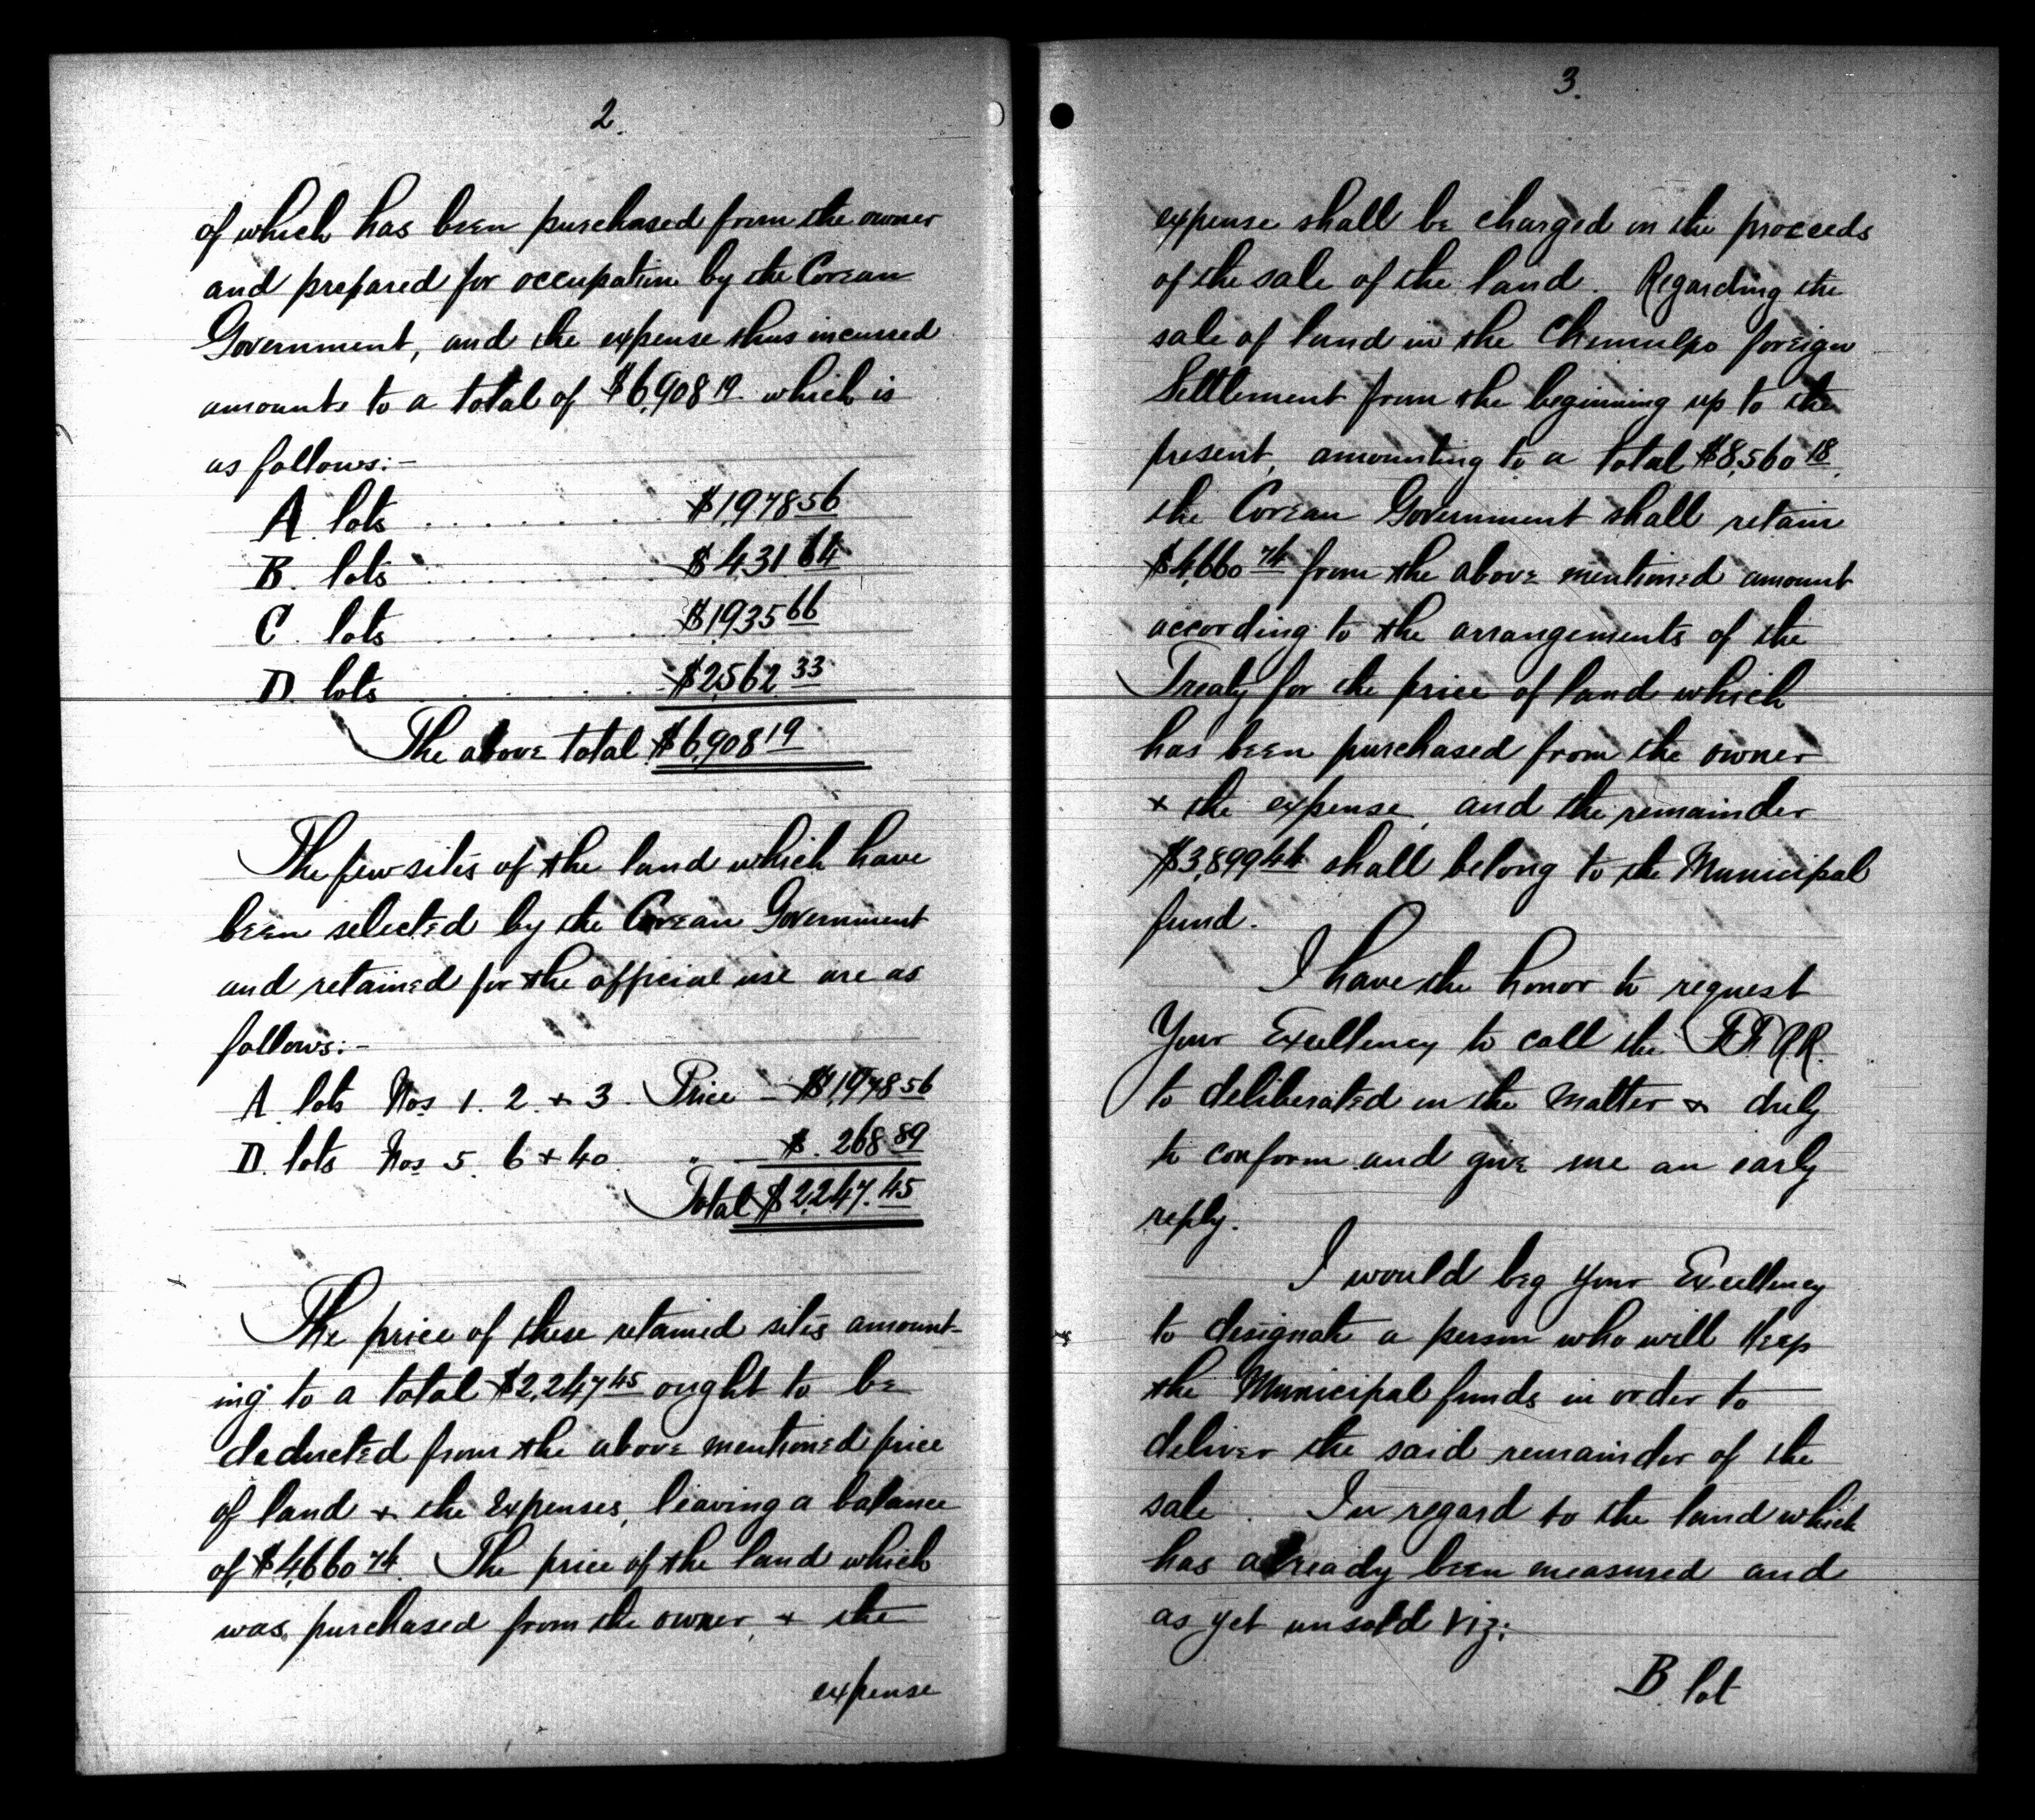 2.
of which has been purchased from the owner
and prepared for occupation by the Corean
Government, and the expense thus incurred
amounts to a total of $6,908 19. which is
as follows:-
A. lots . . . . . . . . $1,978 56
B. lots . . . . . . . . $431.64
C. lots . . . . . . . . $1,935 66
D. lots . . . . . . . . $2,562 33
The above total $6,908 19
The few sites of the land which have
been selected by the Corean Government
and retained for the official use are as
follows:-
A lots Nos 1. 2. + 3. Price - $1,978.56
D. lots Nos 5. 6 + 40. " - $. 268.89
Total $2,247.45
The price of these retained sites amount-
ing to a total $2,247 45 ought to be
deducted from the above mentioned price
of land + the expenses, leaving a balance
of $4,660 74. The price of the land which
was purchased from the owner, + the
expense
3.
expense shall be charged on the proceeds
of the sale of the land. Regarding the
sale of land in the Chemulpo foreign
Settlement from the beginning up to the
present, amounting to a total $8,560 18.
the Corean Government shall retain
$4,660 74 from the above mentioned amount
according to the arrangements of the
Treaty for the price of land which
has been purchased from the owner
+ the expense, and the remainder
$3,899 44 shall belong to the Municipal
fund.
I have the honor to request
Your Excellency to call the FF. RR.
to deliberated on the matter + duly
to conform and give me an early
reply.
I would beg your Excellency
to designate a person who will keep
the Municipal funds in order to
deliver the said remainder of the
sale. In regard to the land which
has already been measured and
as yet unsold viz:
B. lot